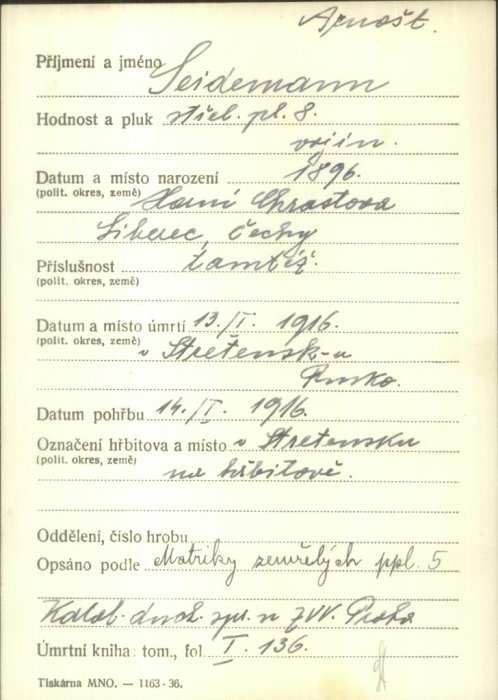 Arnošt.
Příjmení a jméno Seidemann
Hodnost a pluk střel. pl. 8.
vojín.
Datum a místo narození 1896.
(polit. okres, země) Horní Chrastava
Liberec, Čechy
Příslušnost tamtéž.
(polit. okres, země)
Datum a místo úmrtí 13./I. 1916.
(polit. okres, země) v Stretensk-u
Rusko.
Datum pohřbu 14./I. 1916.
Označení hřbitova a místo v Stretensku
(polit. okres, země) na hřbitově.
Oddělení, číslo hrobu
Opsáno podle Matriky zemřelých ppl. 5
Katol. duch. spr. u ZVV. Praha
Úmrtní kniha: tom., fol I. 136.
Tiskárna MNO. — 1163-36.